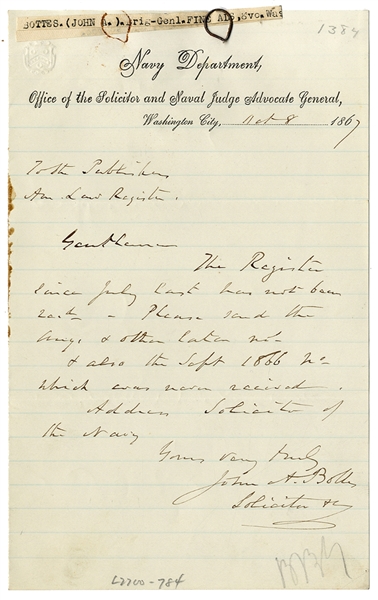 BOTTES. (JOHN A.). Brig-Genl. FINE ALS, Svc. War
1384
Navy Department,
Office of the Solicitor and Naval Judge Advocate General,
Washington City, Oct 8 1867
To the Publishers
Am. Law Register.
Gentlemen
The Register
since July last has not been
recd. Please send the
Aug. & other later nos
& also the Sept 1866 no
which was never received.
Address Solicitor of
the Navy
Yours very truly
John A. Bolles
Solicitor &c
L2700-784